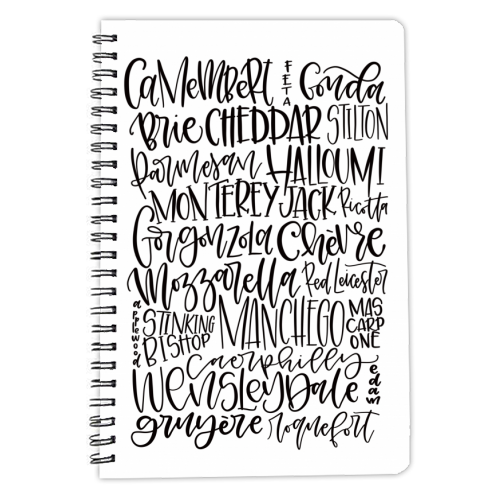 CAMEMBERT FETA Gouda
Brie CHEDDAR STILTON
Parmesan HALLOUMI
MONTEREY JACK Ricotta
Gorgonzola Chèvre
Mozzarella Red Leicester
applewood STINKING BISHOP MANCHEGO MASCARPONE
Caerphilly
WENSLEYDALE edam
gruyère roquefort